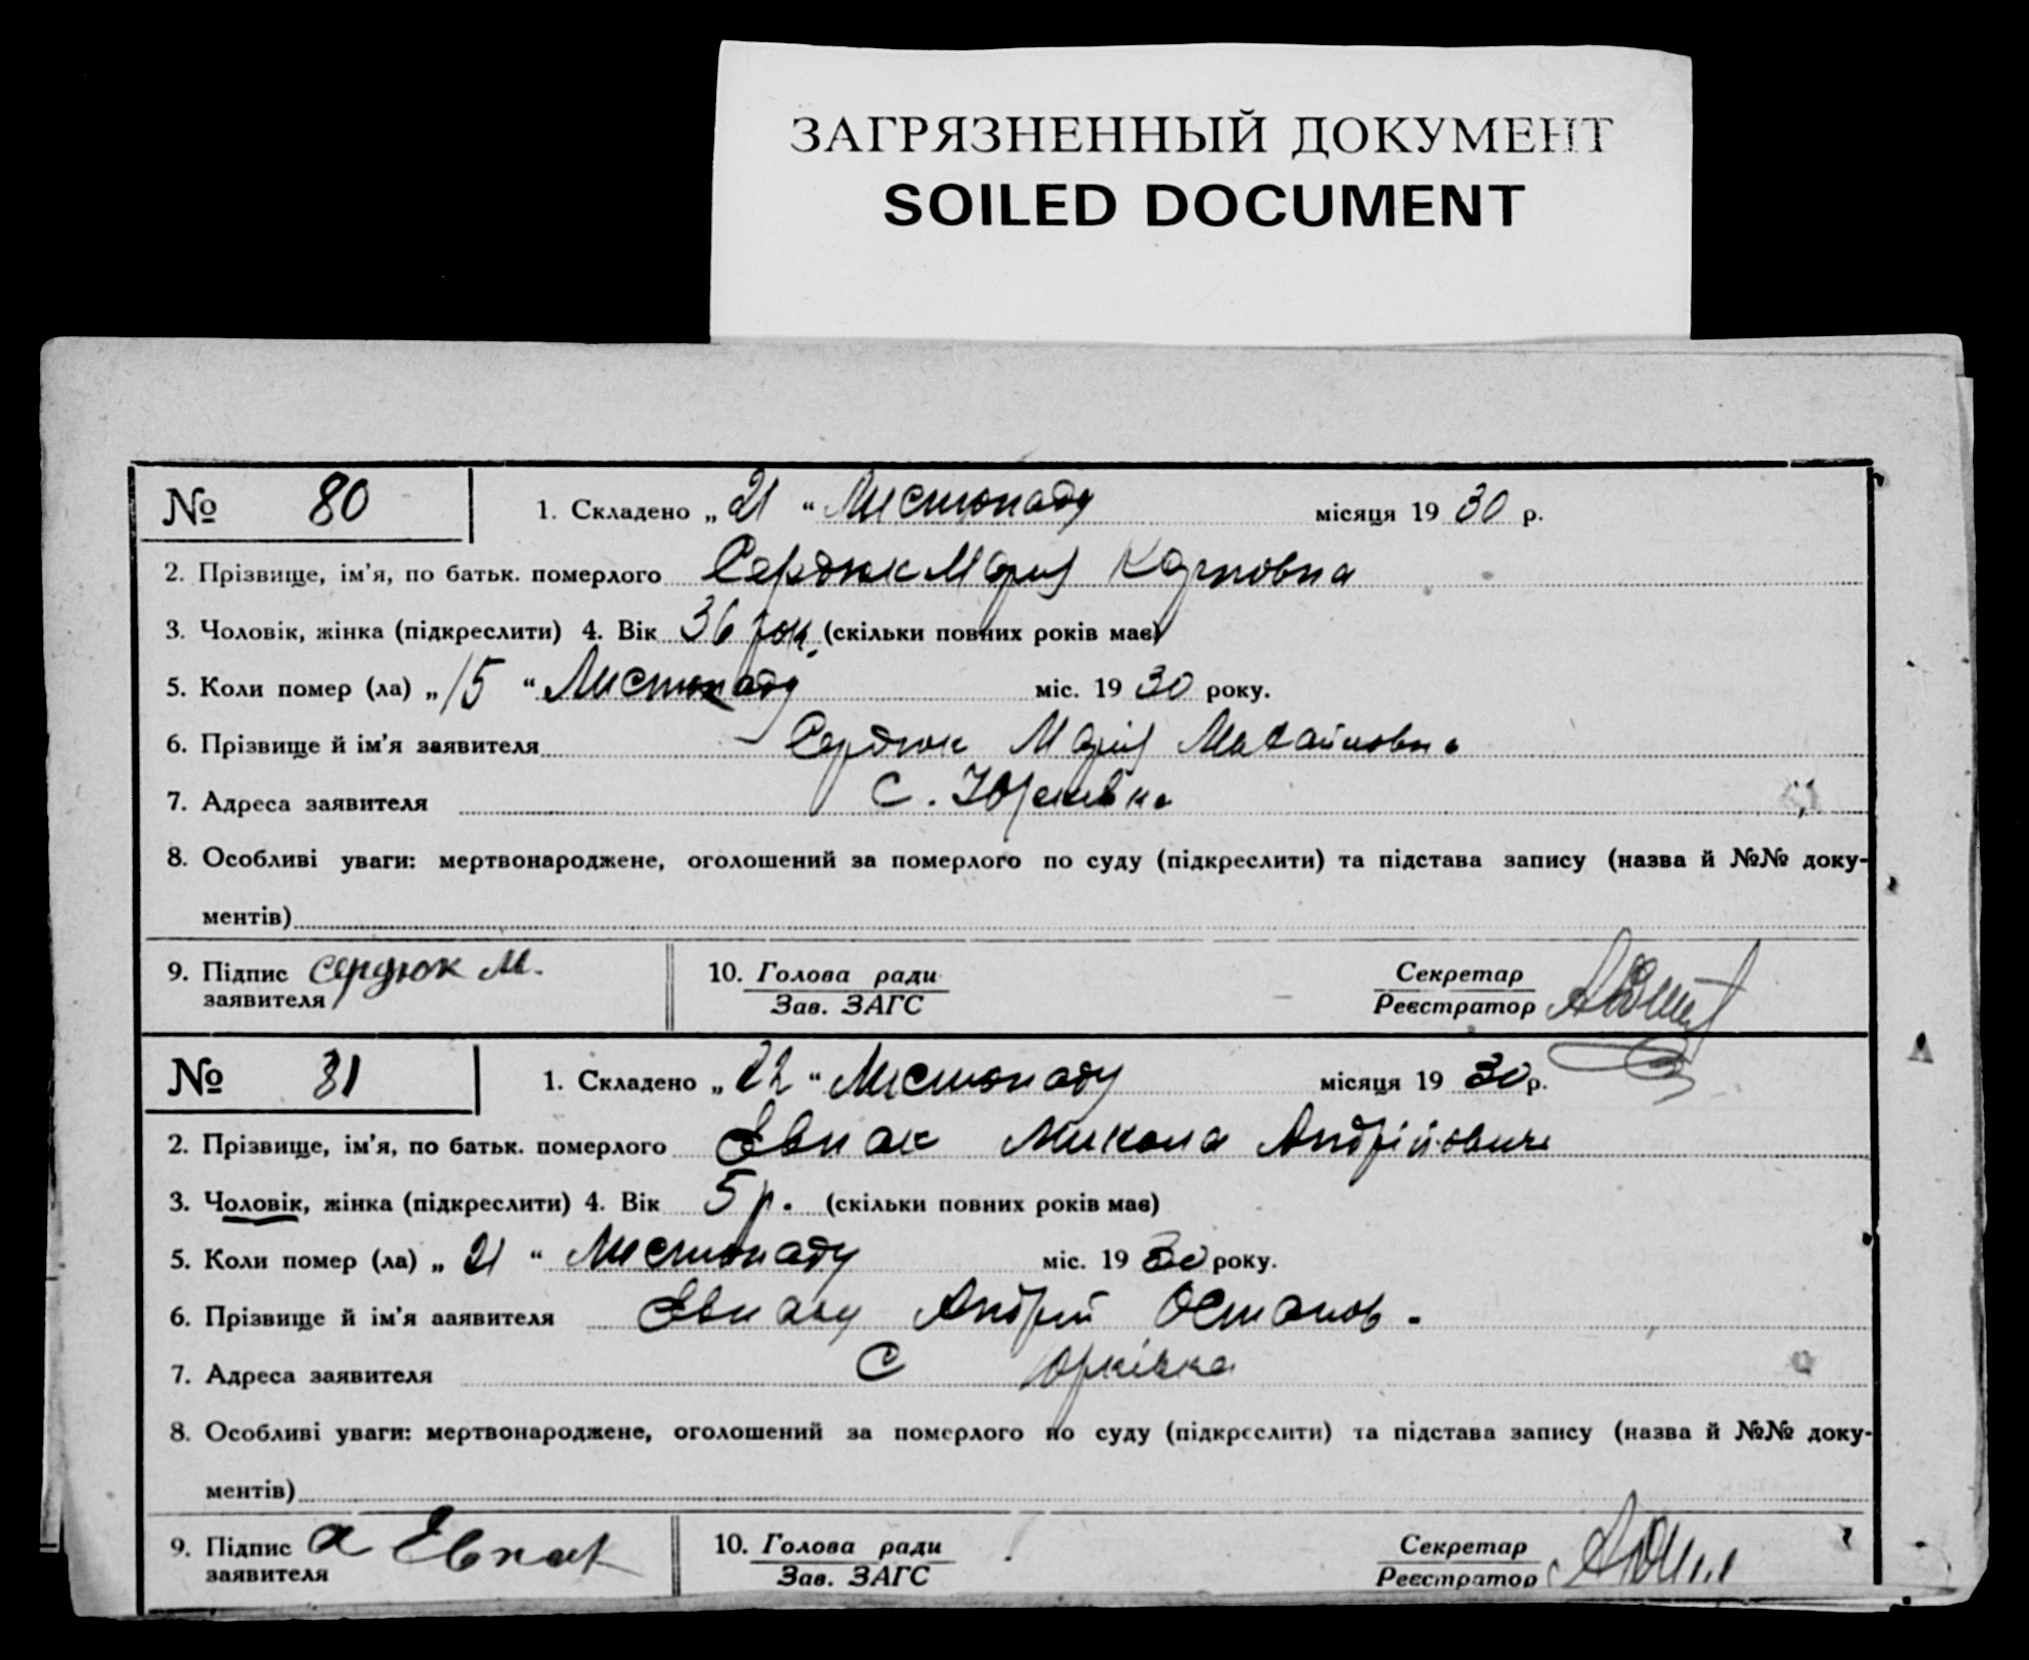 ЗАГРЯЗНЕННЫЙ ДОКУМЕНТ
SOILED DOCUMENT
№ 80 1. Складено „ 21 “ Листопаду місяця 19 30 р.
2. Прізвище, ім'я, по батьк. померлого Сердюк Марія Карповна
3. Чоловік, жінка (підкреслити) 4. Вік 36 рок. (скільки повних років має)
5. Коли помер (ла) „ 15 “ Листопаду міс. 19 30 року.
6. Прізвище й ім'я заявителя Сердюк Марія
7. Адреса заявителя С. Юрківка
8. Особливі уваги: мертвонароджене, оголошений за померлого по суду (підкреслити) та підстава запису (назва й №№ доку-
ментів)
9. Підпис заявителя Сердюк М. 10. Голова ради Секретар
Зав. ЗАГС Реєстратор
№ 81 1. Складено „ 22 “ Листопаду місяця 19 30 р.
2. Прізвище, ім'я, по батьк. померлого Євпак Микола Андрійович
3. Чоловік, жінка (підкреслити) 4. Вік 5 р. (скільки повних років має)
5. Коли помер (ла) „ 21 “ Листопаду міс. 19 30 року.
6. Прізвище й ім'я заявителя Андрій Остапов.
7. Адреса заявителя С Юрківка
8. Особливі уваги: мертвонароджене, оголошений за померлого по суду (підкреслити) та підстава запису (назва й №№ доку-
ментів)
9. Підпис заявителя а Євпак 10. Голова ради Секретар
Зав. ЗАГС Реєстратор